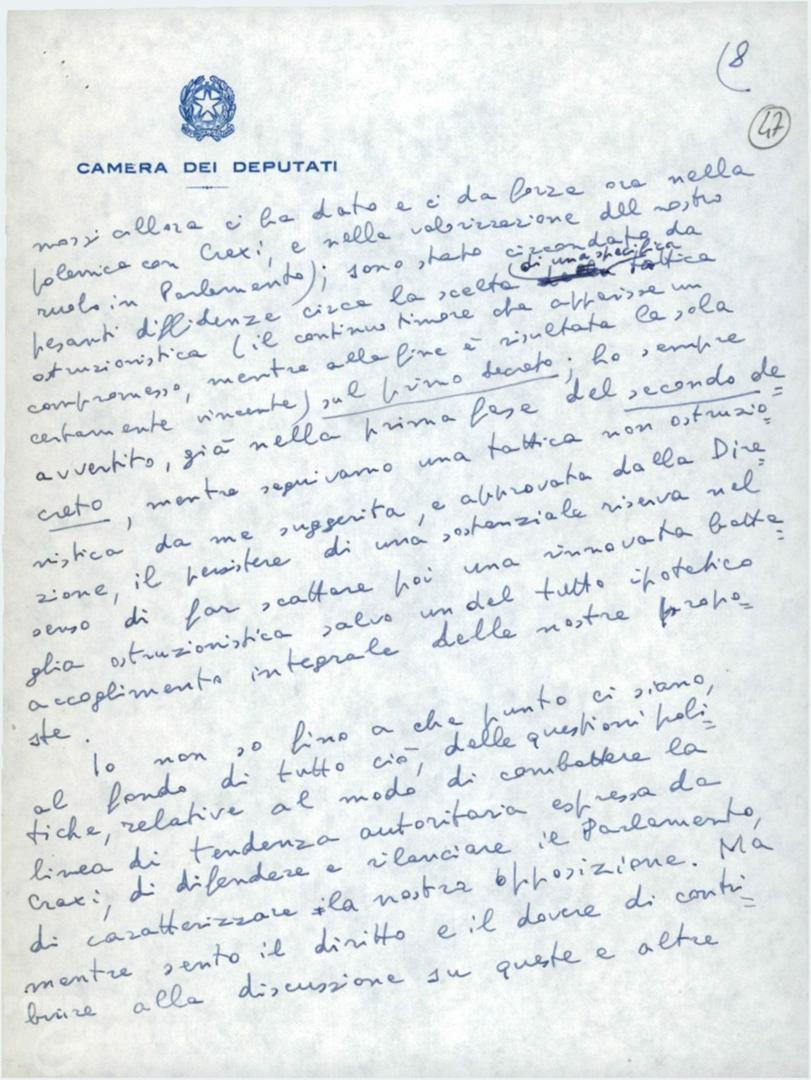 (8
47
CAMERA DEI DEPUTATI
mossi allora ci ha dato e ci da forza ora nella
polemica con Craxi, e nella valorizzazione del nostro
ruolo in Parlamento); sono stato circondato da
pesanti diffidenze circa la scelta di una specifica tattica
ostruzionistica (il continuo timore che apparisse un
compromesso, mentre alla fine è risultata la sola
certamente vincente) sul primo decreto; ho sempre
avvertito, già nella prima fase del secondo de=
creto, mentre seguivamo una tattica non ostruzio=
nistica da me suggerita, e approvata dalla Dire=
zione, il persistere di una sostanziale riserva nel
senso di far scattare poi una rinnovata batta=
glia ostruzionistica salvo un del tutto ipotetico
accoglimento integrale delle nostre propo=
ste.
Io non so fino a che punto ci siano,
al fondo di tutto ciò, delle questioni poli=
tiche, relative al modo di combattere la
linea di tendenza autoritaria espressa da
Craxi, di difendere e rilanciare il Parlamento,
di caratterizzare la nostra opposizione. Ma
mentre sento il diritto e il dovere di contri=
buire alla discussione su queste e altre